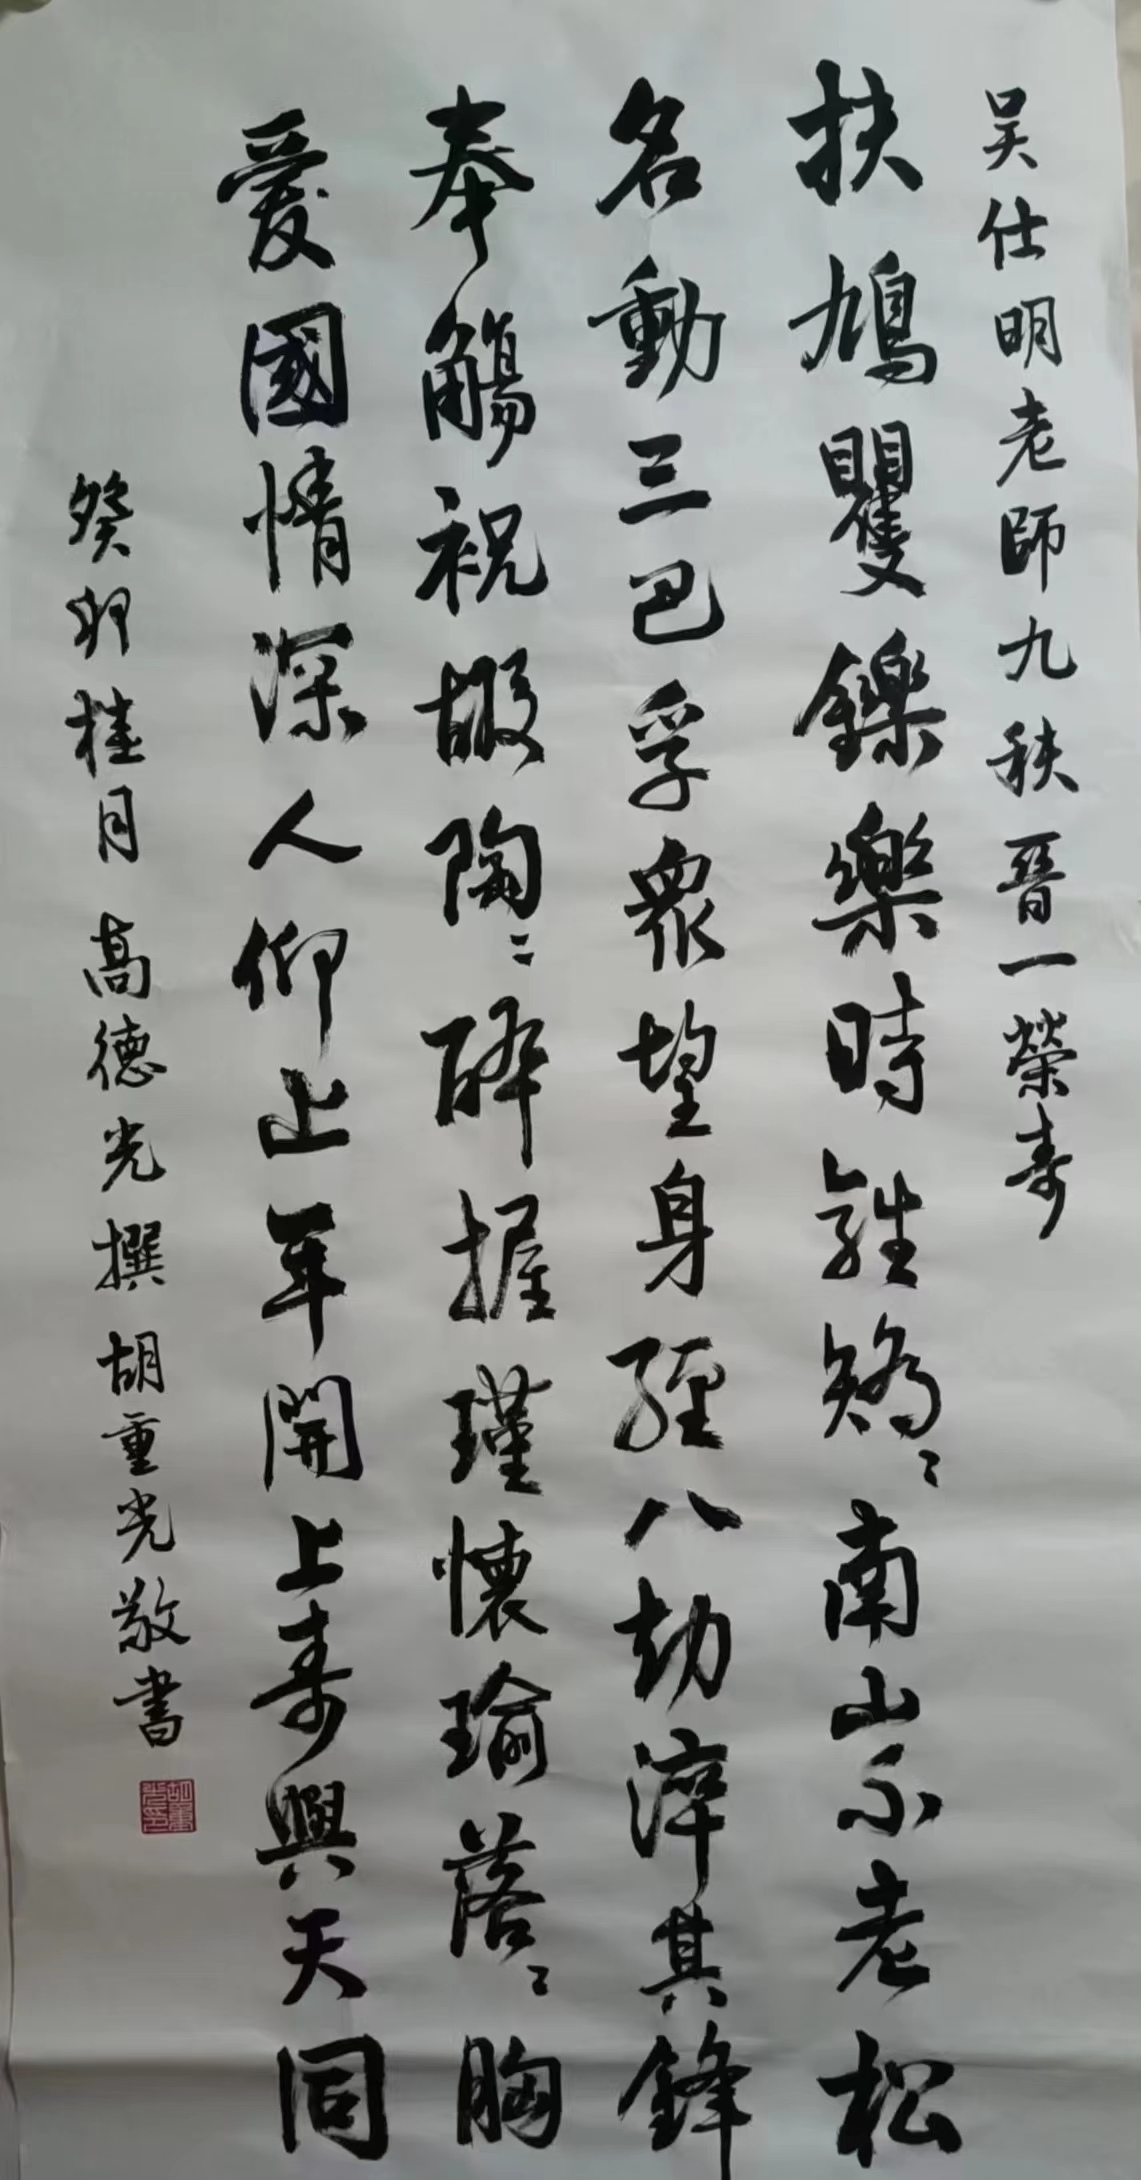 吴仕明老師九秩晉一榮寿
扶鳩矍鑠樂時矯〻南山不老松
名動三巴孚衆望身經八劫淬其鋒
奉觴祝嘏陶〻醉握瑾懷瑜落〻胸
愛國情深人仰止年開上寿與天同
癸卯桂月 高德光撰 胡重光敬書
胡重光印